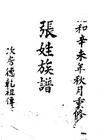 和辛未年秋月重修
張姓族譜
次房德乾祖傳